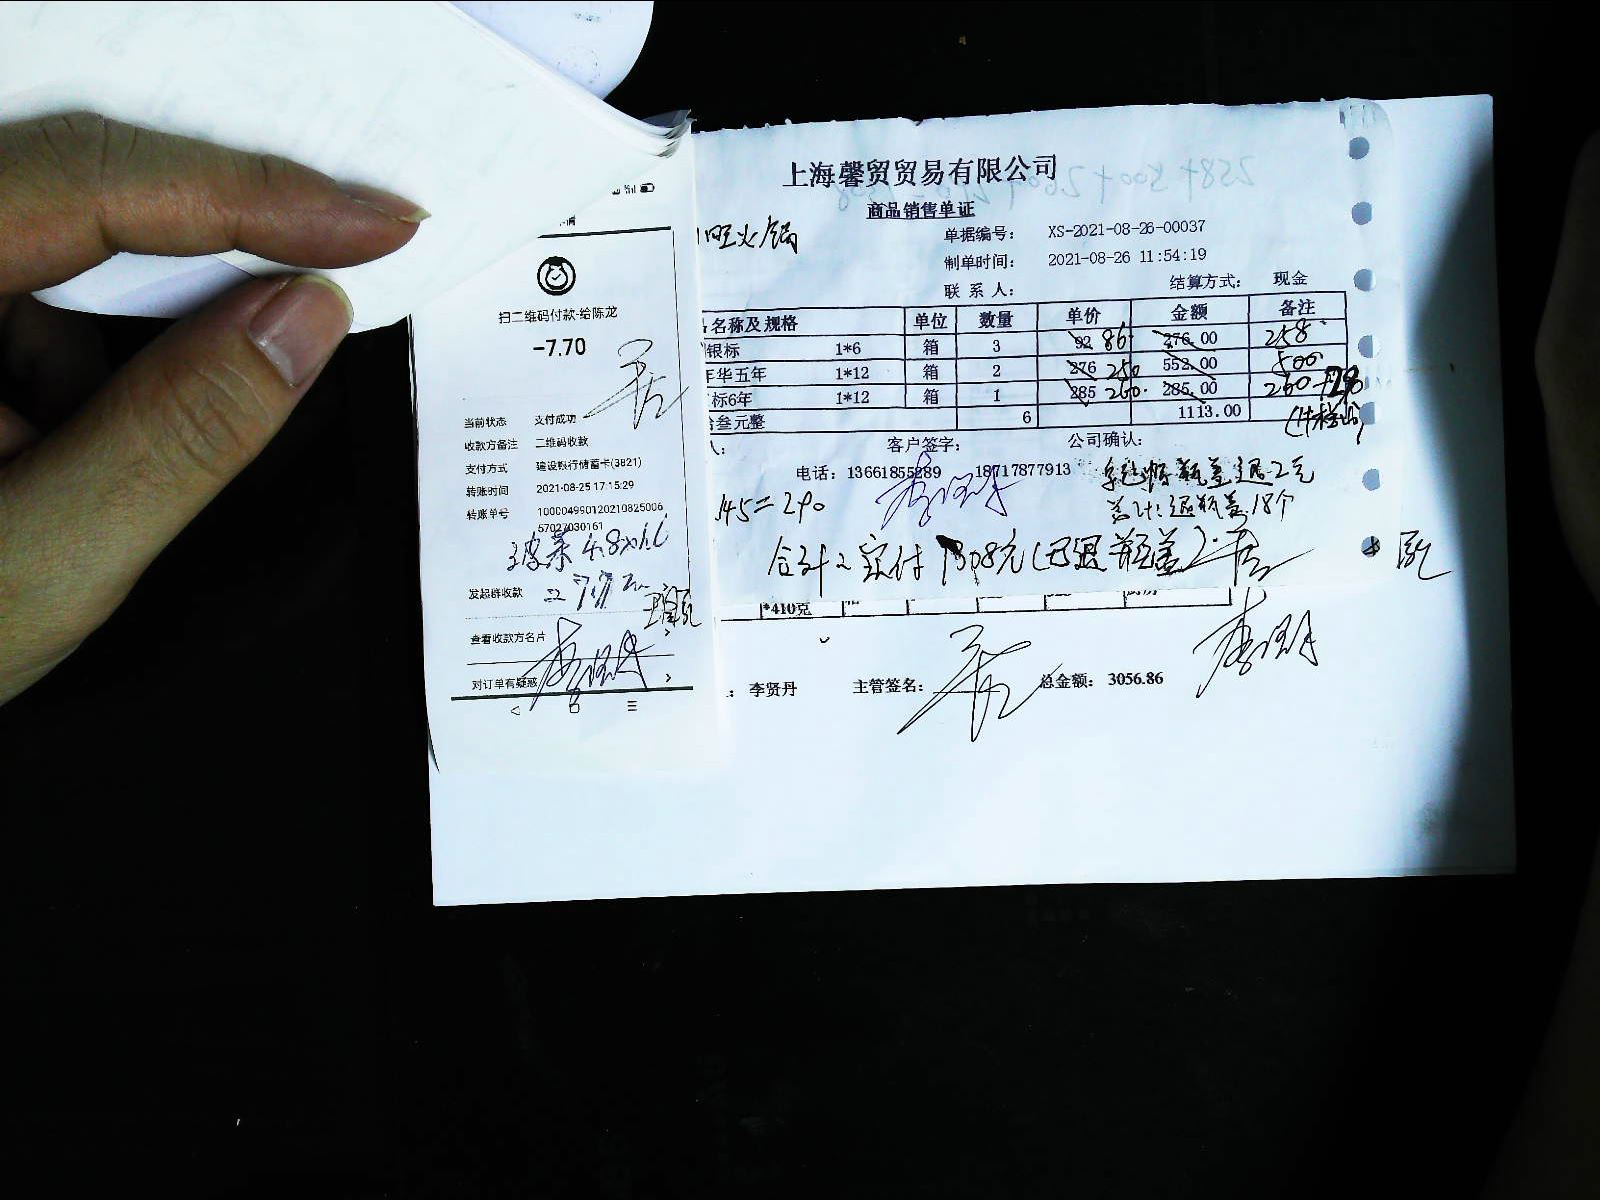 扫二维码付款-给陈龙
-7.70
当前状态 支付成功
收款方备注 二维码收款
支付方式 建设银行储蓄卡(3821)
转账时间 2021-08-25 17:15:29
转账单号 100004990120210825006
57027030161
菠菜 4.8x1.6
发起群收款
查看收款方名片
对订单有疑惑
上海馨贸贸易有限公司
商品销售单证
旺火锅
单据编号： XS-2021-08-26-00037
制单时间： 2021-08-26 11:54:19
联系人： 结算方式： 现金
名称及规格 单位 数量 单价 金额 备注
银标 1*6 箱 3 92 86 276.00 258
年华五年 1*12 箱 2 276 250 552.00 500
标6年 1*12 箱 1 285 260 285.00 260
叁元整 6 1113.00
客户签字： 公司确认：
电话：13661855889 18717877913
瓶盖退2元
145=290
总计：退瓶盖18个
合计：实付 1308元（已退瓶盖）
*410克
李贤丹 主管签名： 总金额： 3056.86